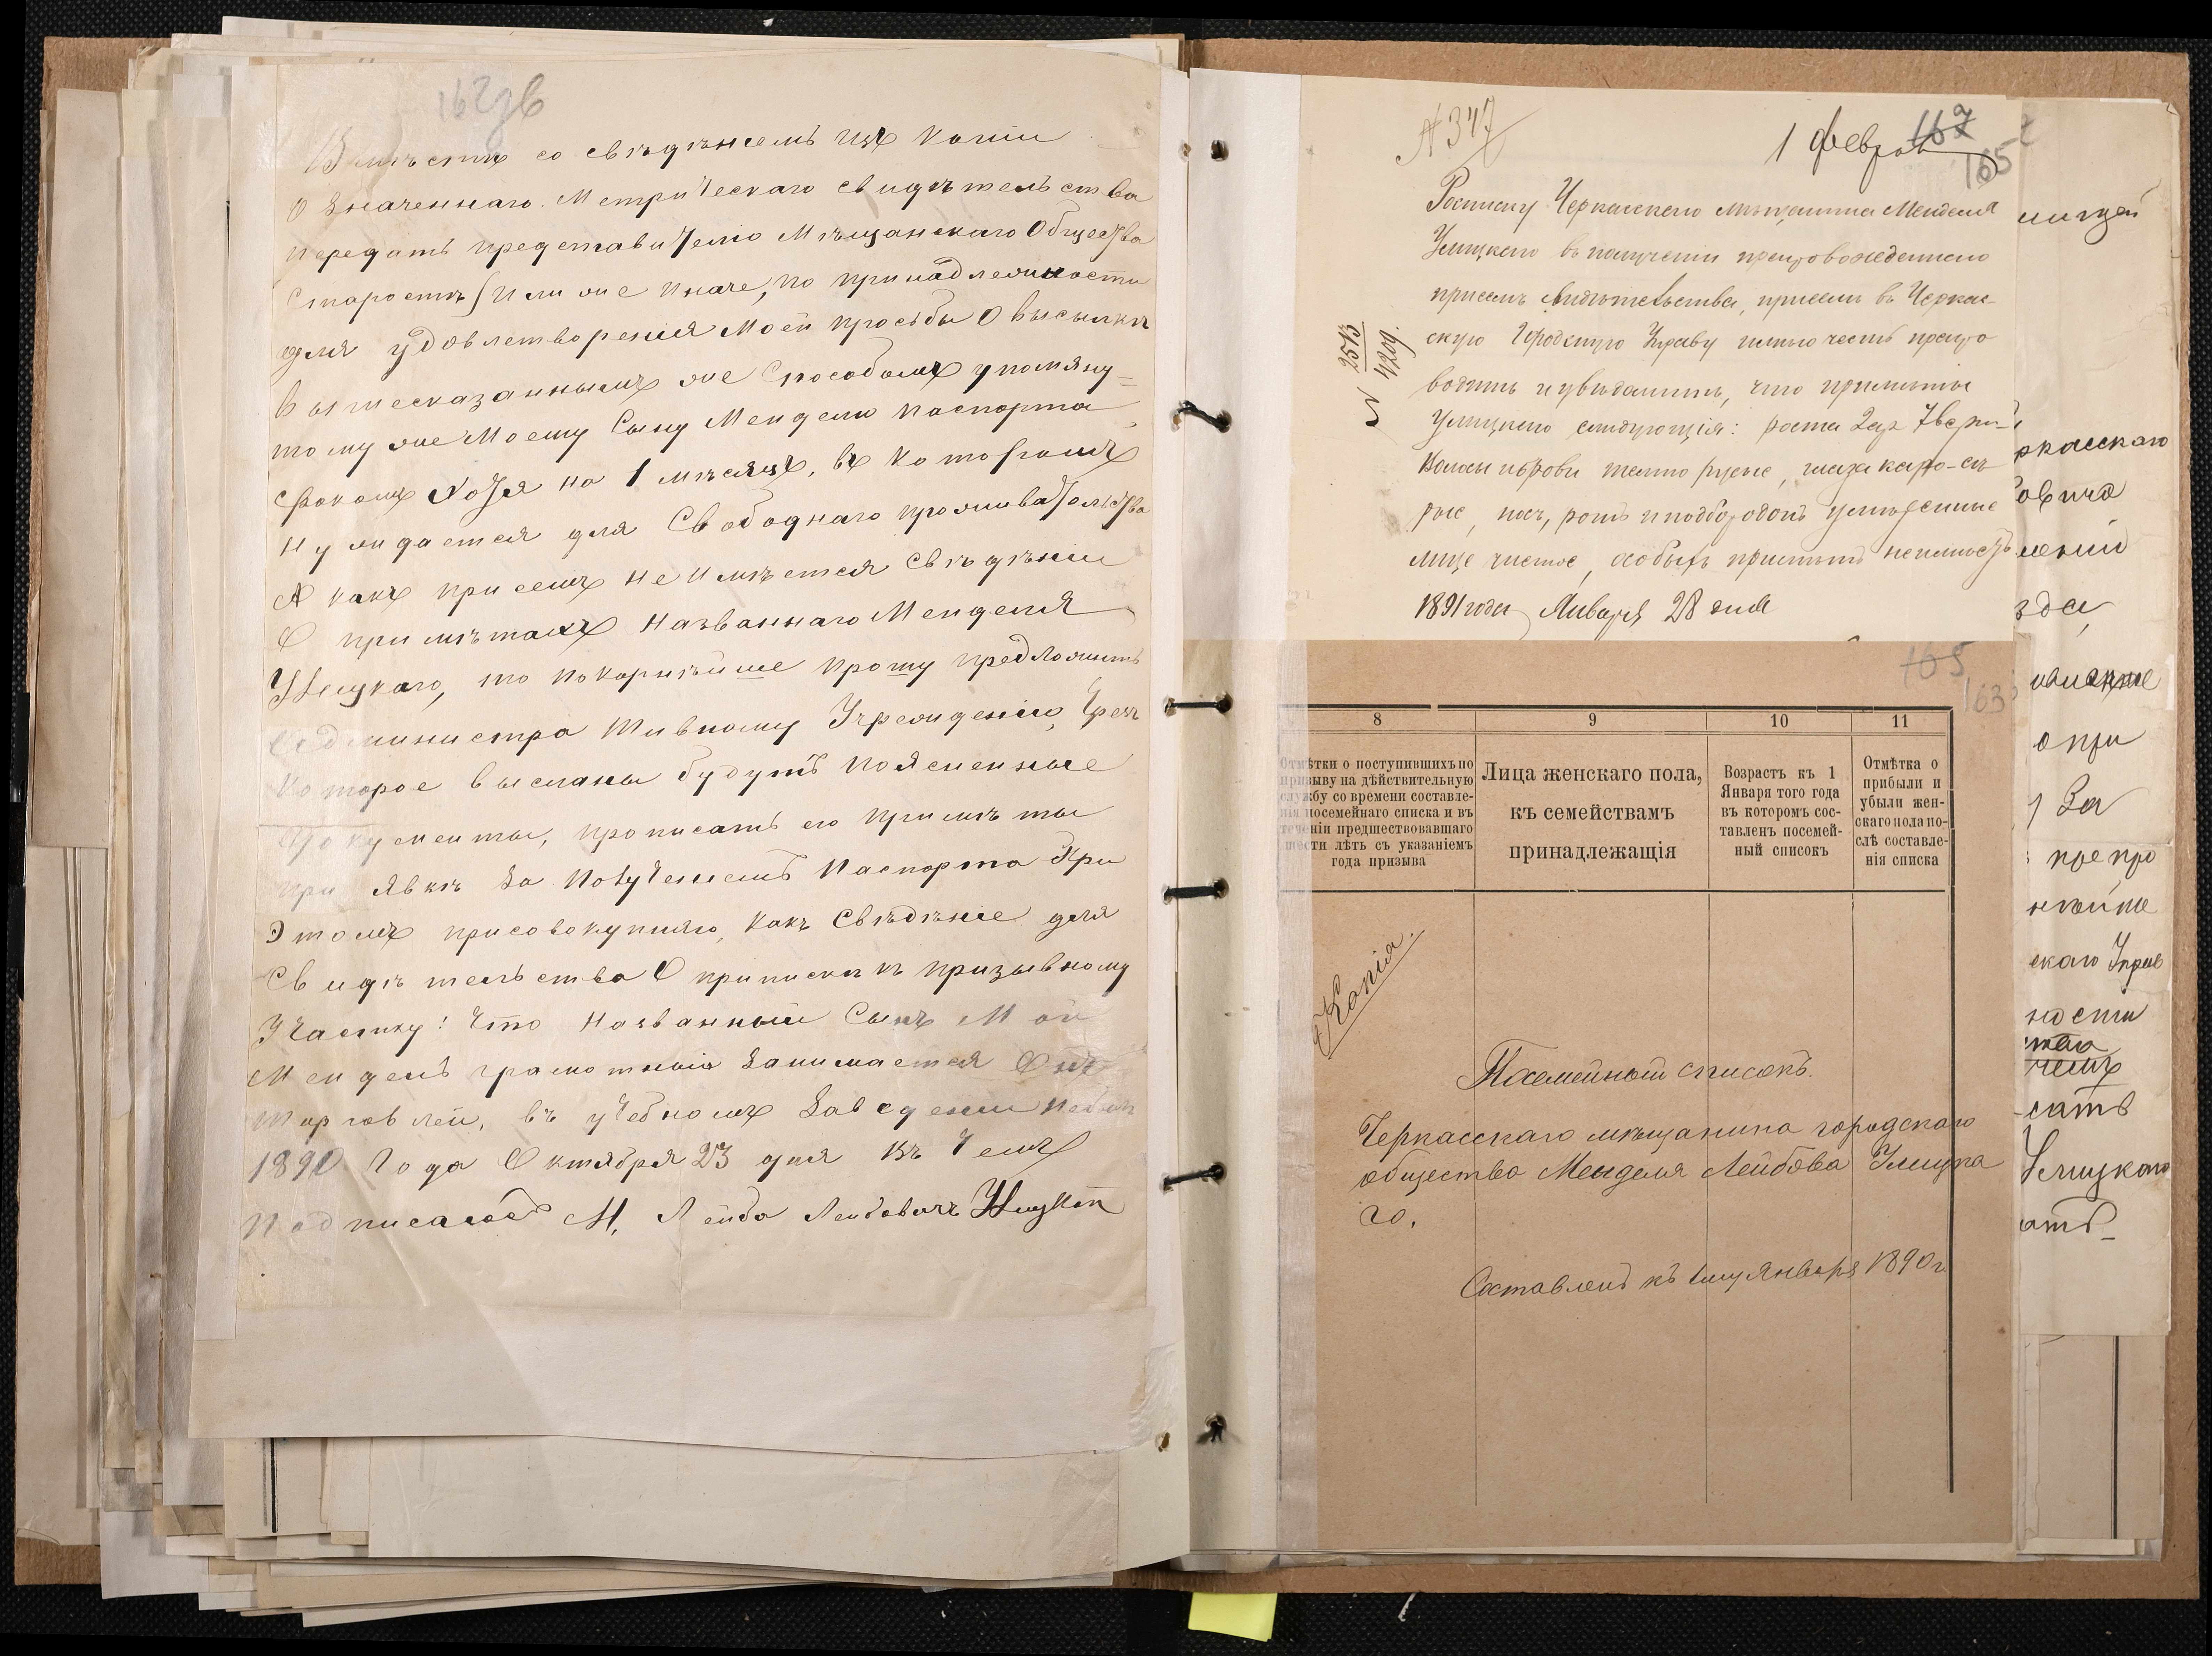 162 зв
Вмѣстѣ со свѣдѣнiемъ изъ копiи
означеннаго Метрическаго свидѣтельства
передать представителю Мѣщанскаго Общества
Старостѣ или же иначе, по принадлежности
для удовлетворенiя моей просьбы о высылкѣ
вышесказаннымъ же способомъ упомяну=
тому же моему сыну Менделю паспорта
срокомъ хотя на 1 мѣсяцъ, въ которомъ
нуждается для свободнаго проживательства
А какъ при семъ не имѣется свѣдѣнiи
О примѣтахъ названнаго Менделя
Улицкаго, то покорнѣйше прошу предложить
Административному Учрежденiю, чрезъ
которое высланы будутъ поясненные
документы, прописать его примѣты
при явкѣ за полученiемъ паспорта При
этомъ присовокупляю, какъ свѣдѣнiе для
свидѣтельства о припискѣ къ призывному
участку: что названный сынъ мой
Мендель грамотный занимается
торговлей, въ учебномъ заведенiи небылъ
1890 года Октября 23 дня въ чемъ
подписался М. Лейба Лейбовичъ Улицкiй
N 347
1 февра
167
165
Росписку Черкасскаго мѣщанина Менделя
Улицкаго въ полученiи препровожденнаго
присемъ свидѣтельства, присемъ въ Черкас-
скую Городскую Управу имѣю честь препро
водить и увѣдомить, что примѣты
Улицкаго слѣдующiя: роста 2 ар 7 верш
волосы и брови темно русые, глаза каро-сѣ
рые, носъ, ротъ и подбородокъ умѣренные
лице чистое, особыхъ примѣтъ неимѣетъ
1891 года Января 28 дня
N 2513
4209.
165
163
8
9
10
11
Отмѣтки о поступившихъ по
призыву на дѣйствительную
службу со времени составле-
нiя посемейнаго списка и въ
теченiи предшествовавшаго
шести лѣтъ съ указанiемъ
года призыва
Лица женскаго пола,
къ семействамъ
принадлежащiя
Возрастъ къ 1
Января того года
въ которомъ сос-
тавленъ посемей-
ный списокъ
Отмѣтка о
прибыли и
убыли жен-
скаго пола по-
слѣ составле-
нiя списка
Копiя.
Посемейный списокъ.
Черкасскаго мѣщанина городскаго
общества Менделя Лейбова Улицка
го.
Составленъ къ 1му Января 1890 г.
ркасскаго
овича
зда,
опри
За
препро
нѣйше
скаго Управ
ности
чемъ
сать
Улицкаго
ать